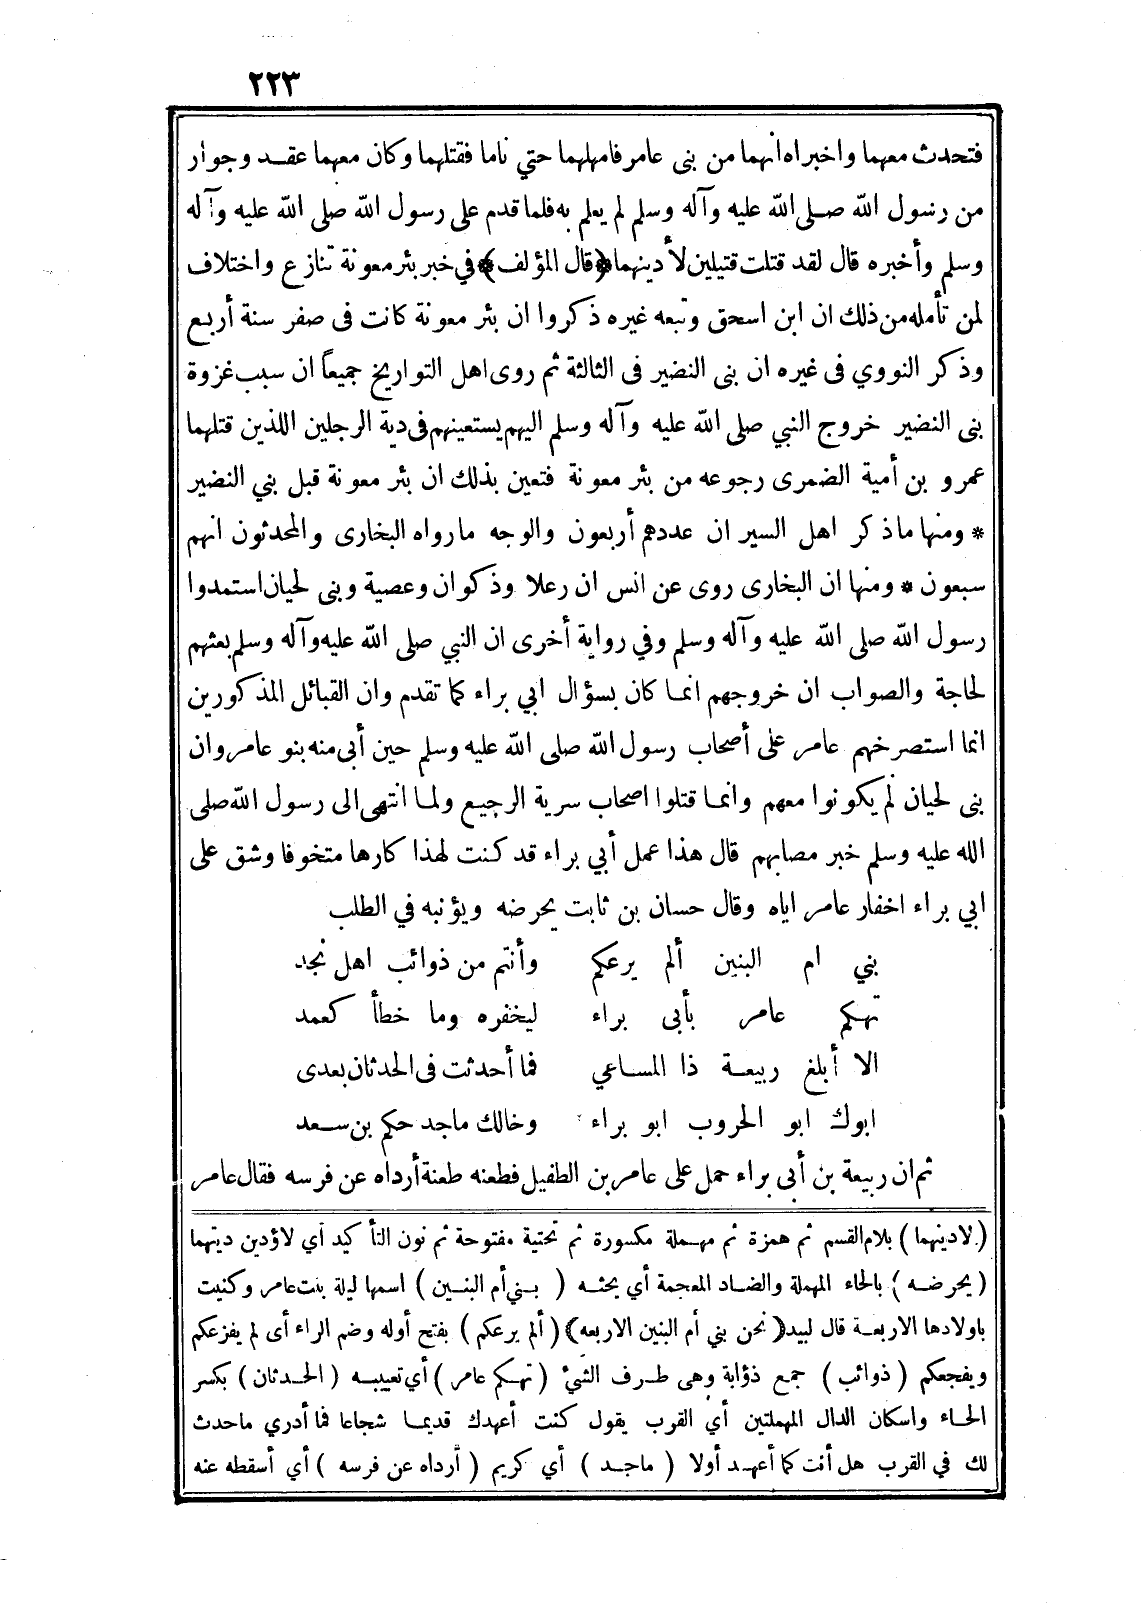 ٢٢٣
فتحدث معهما واخبراه انهما من بنى عامر فامهلهما حتي ناما فقتلهما وكان معهما عقد وجوار
من رسول الله صلى الله عليه وآله وسلم لم يعلم به فلما قدم على رسول الله صلى الله عليه وآله
وسلم وأخبره قال لقد قتلت قتيلين لأدينهما ﴿قال المؤلف﴾ في خبر بئر معونة تنازع واختلاف
لمن تأمله من ذلك ان ابن اسحق وتبعه غيره ذكروا ان بئر معونة كانت فى صفر سنة أربع
وذكر النووي فى غيره ان بنى النضير فى الثالثة ثم روى اهل التواريخ جميعاً ان سبب غزوة
بنى النضير خروج النبي صلى الله عليه وآله وسلم اليهم يستعينهم فى دية الرجلين اللذين قتلهما
عمرو بن أمية الضمرى رجوعه من بئر معونة فتعين بذلك ان بئر معونة قبل بني النضير
* ومنها ما ذكر اهل السير ان عددهم أربعون والوجه ما رواه البخارى والمحدثون انهم
سبعون * ومنها ان البخارى روى عن انس ان رعلا وذكوان وعصية وبنى لحيان استمدوا
رسول الله صلى الله عليه وآله وسلم وفي رواية أخرى ان النبي صلى الله عليه وآله وسلم بعثهم
لحاجة والصواب ان خروجهم انما كان بسؤال ابي براء كما تقدم وان القبائل المذكورين
انما استصرخهم عامر على أصحاب رسول الله صلى الله عليه وسلم حين أبى منه بنو عامر وان
بنى لحيان لم يكونوا معهم وانما قتلوا اصحاب سرية الرجيع ولما انتهى الى رسول الله صلى
الله عليه وسلم خبر مصابهم قال هذا عمل أبي براء قد كنت لهذا كارها متخوفا وشق على
ابي براء اخفار عامر اياه وقال حسان بن ثابت يحرضه ويؤنبه في الطلب
بني ام البنين ألم يرعكم وأنتم من ذوائب اهل نجد
تهكم عامر بأبى براء ليخفره وما خطأ كعمد
الا أبلغ ربيعة ذا المساعي فما أحدثت فى الحدثان بعدى
ابوك ابو الحروب ابو براء وخالك ماجد حكم بن سعد
ثم ان ربيعة بن أبي براء حمل على عامر بن الطفيل فطعنه طعنة أرداه عن فرسه فقال عامر
(لادينهما) بلام القسم ثم همزة ثم مهملة مكسورة ثم تحتية مفتوحة ثم نون التأكيد أي لاؤدين ديتهما
(يحرضه) بالحاء المهملة والضاد المعجمة أي يحثه (بني أم البنين) اسمها ليلة بنت عامر وكنيت
باولادها الاربعة قال لبيد (نحن بني أم البنين الاربعه) (ألم يرعكم) بفتح أوله وضم الراء أى لم يفزعكم
ويفجعكم (ذوائب) جمع ذؤابة وهى طرف الشئ (تهكم عامر) أي تعييبه (الحدثان) بكسر
الحاء واسكان الدال المهملتين أي القرب يقول كنت أعهدك قديما شجاعا فما أدري ما حدث
لك في القرب هل أنت كما أعهد أولا (ماجد) أي كريم (أرداه عن فرسه) أي أسقطه عنه